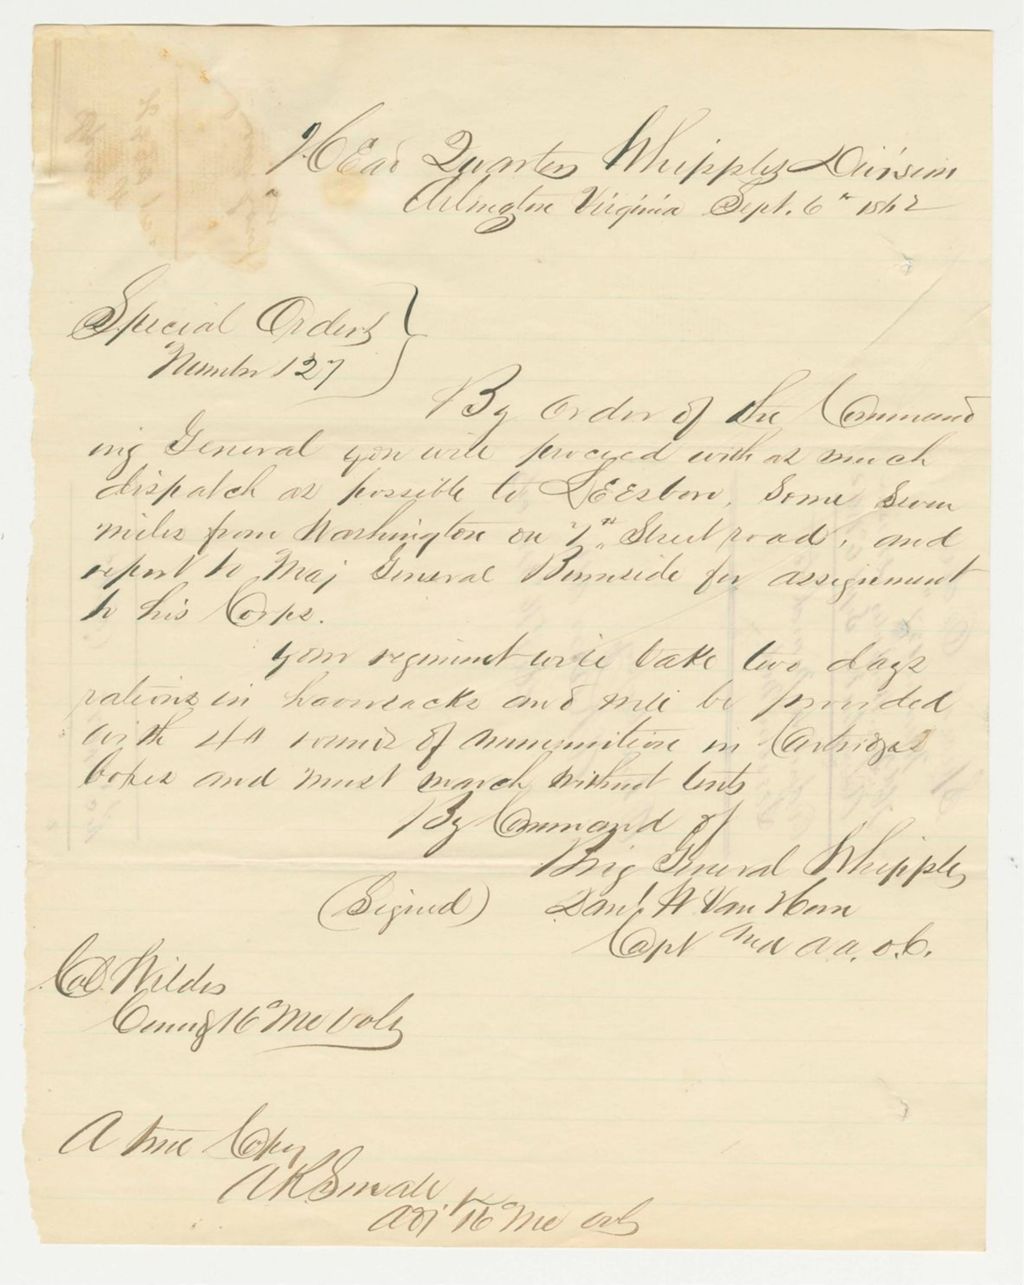 Head Quarters Whipples Division
Arlington Virginia Sept. 6th 1862
Special Orders }
Number 127
By Order of the Command
ing General you will proceed with as much
dispatch as possible to LEEsboro, Some Seven
miles from Washington on 7th Street road, and
report to Maj General Burnside for assignment
to his Corps.
Your regiment will take two days
rations in haversacks and will be provided
with 40 rounds of ammunition in Cartridge
boxes and must march without tents
By Command of
Brig General Whipple,
(Signed) Danl W Van Horn
Capt and a a. a. G.
Col. Wildes
Comdg 16 Me Vols
A true Copy
A R Small
Adjt 16 Me vols